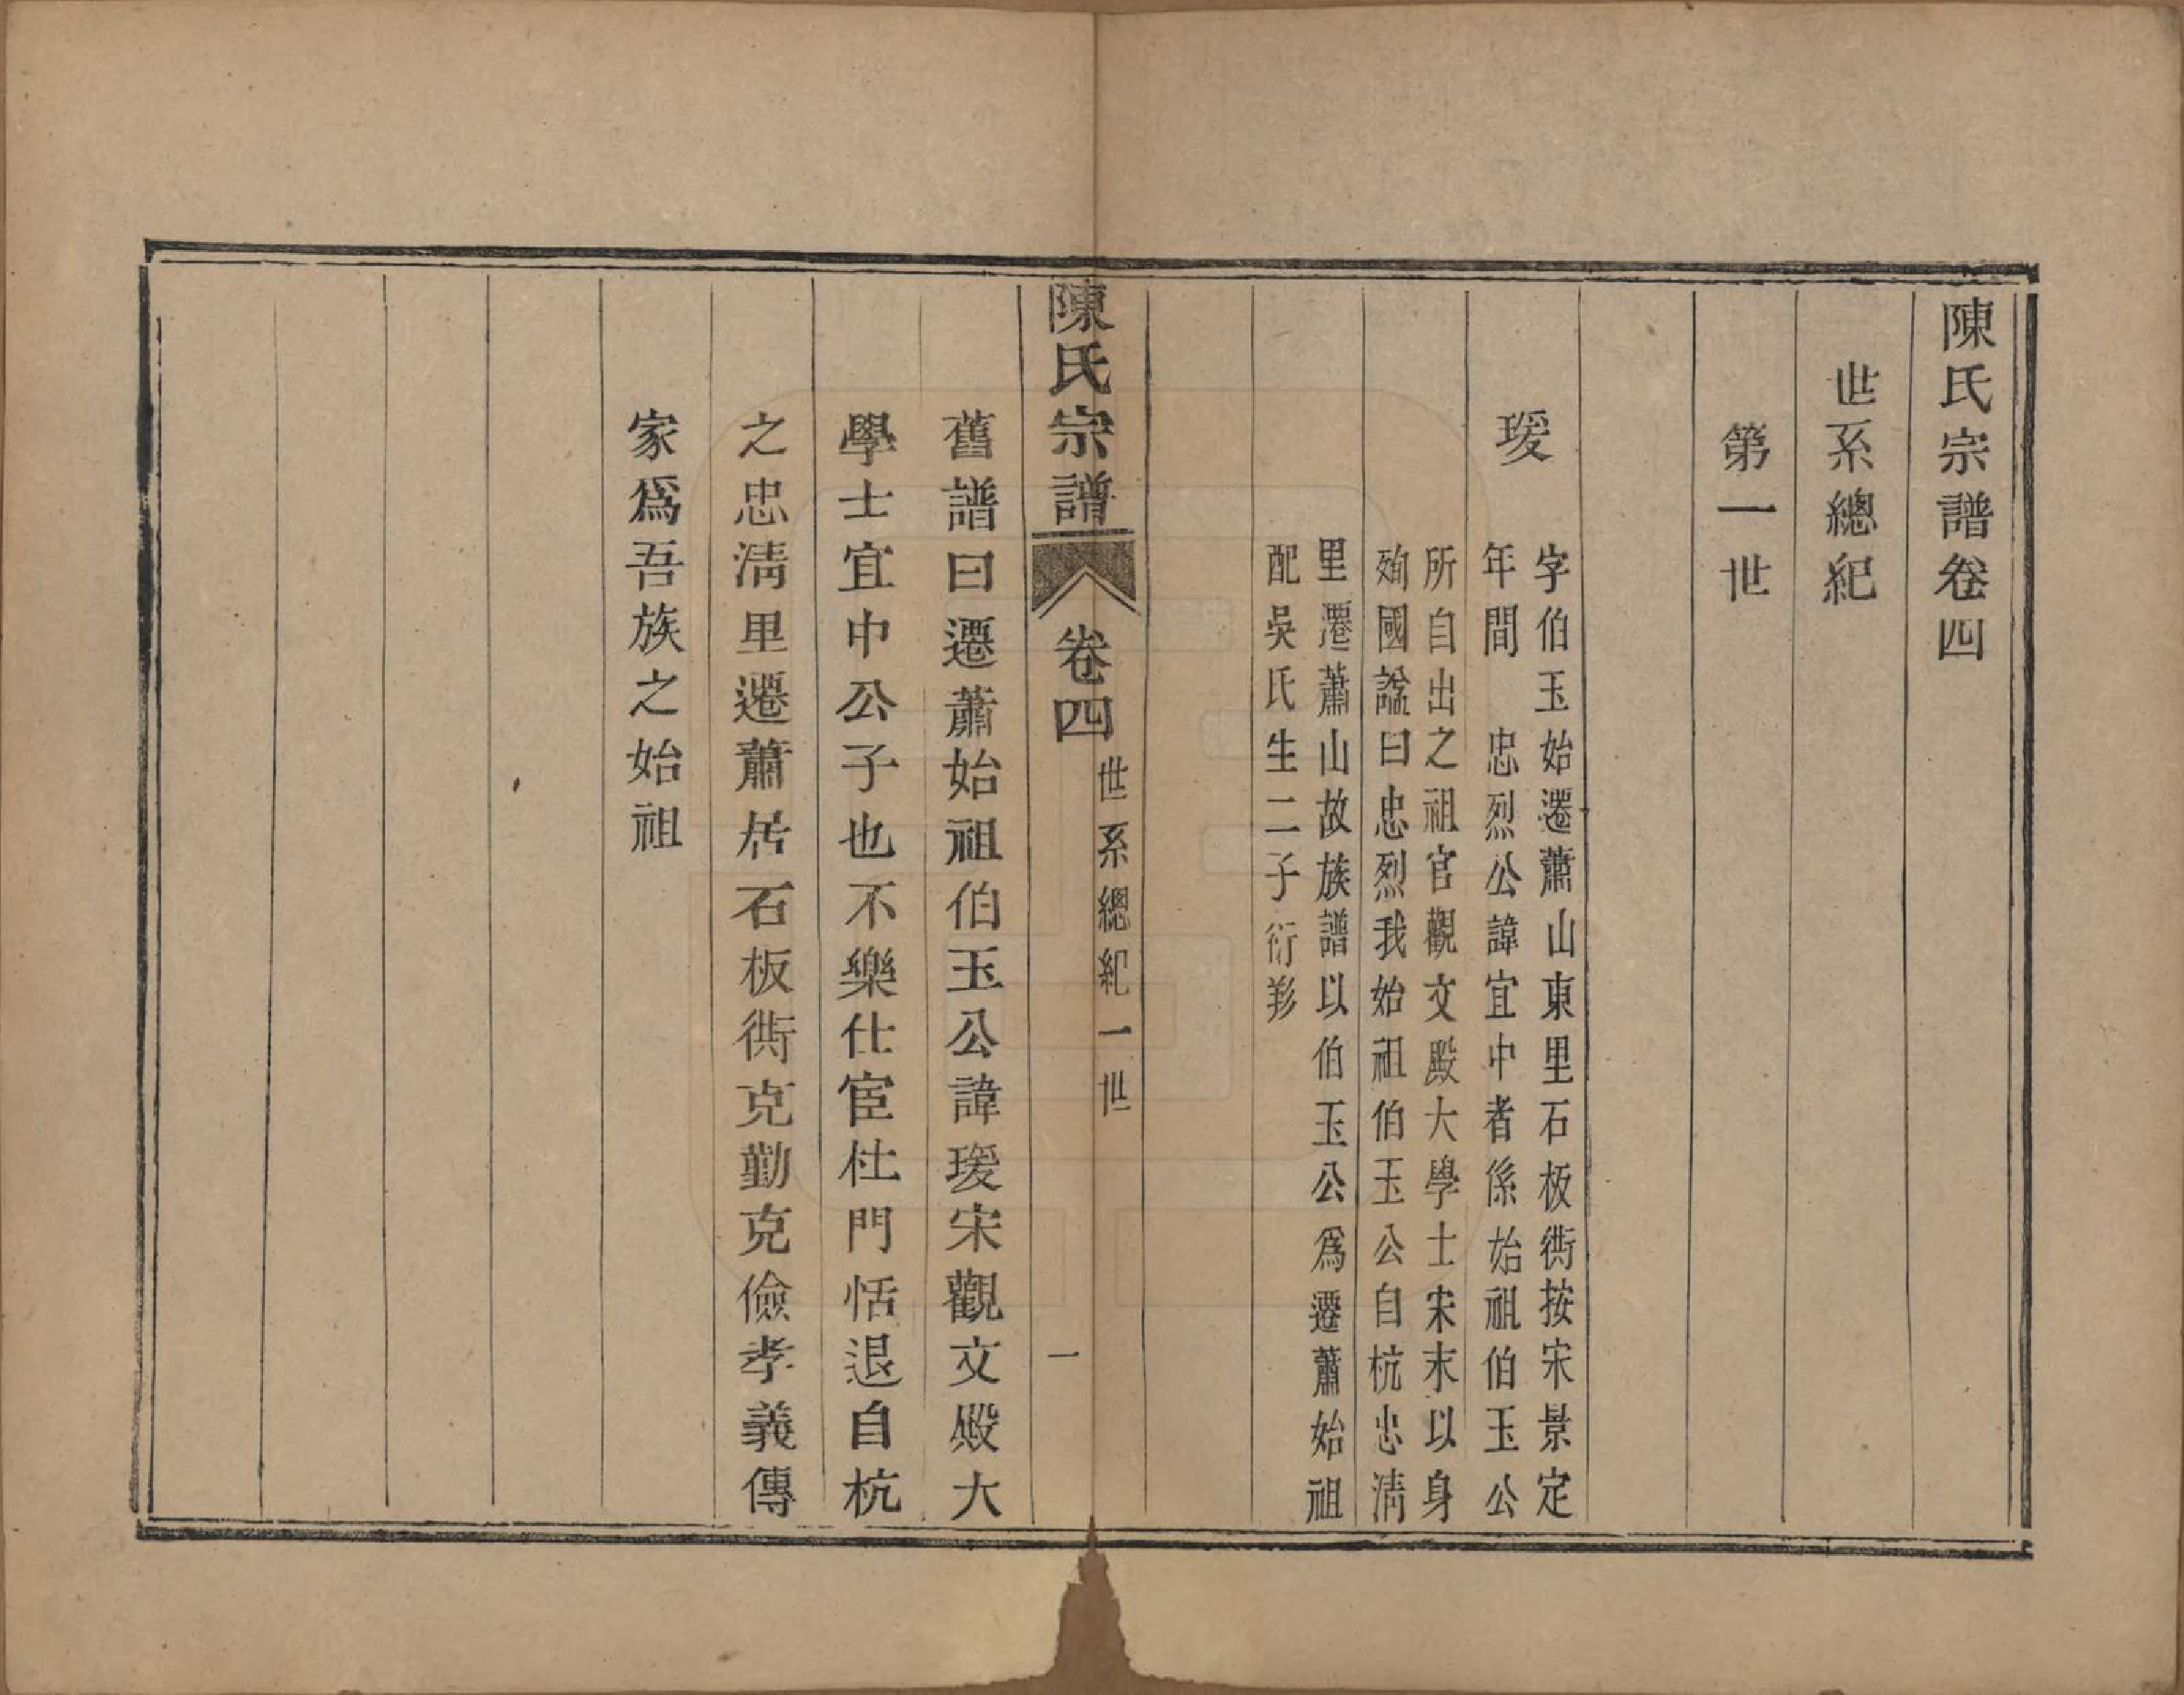 陳氏宗譜卷四
世系總紀
第一世
瑗
字伯玉始遷蕭山東里石板衖按宋景定
年間　忠烈公諱宜中者係始祖伯玉公
所自出之祖官觀文殿大學士宋末以身
殉國諡曰忠烈我始祖伯玉公自杭忠清
里遷蕭山故族譜以伯玉公爲遷蕭始祖
配吳氏生二子衍
陳氏宗譜
卷四
世系總紀一世
一
舊譜曰遷蕭始祖伯玉公諱瑗宋觀文殿大
學士宜中公子也不樂仕宦杜門恬退自杭
之忠清里遷蕭居石板衖克勤克儉孝義傳
家爲吾族之始祖